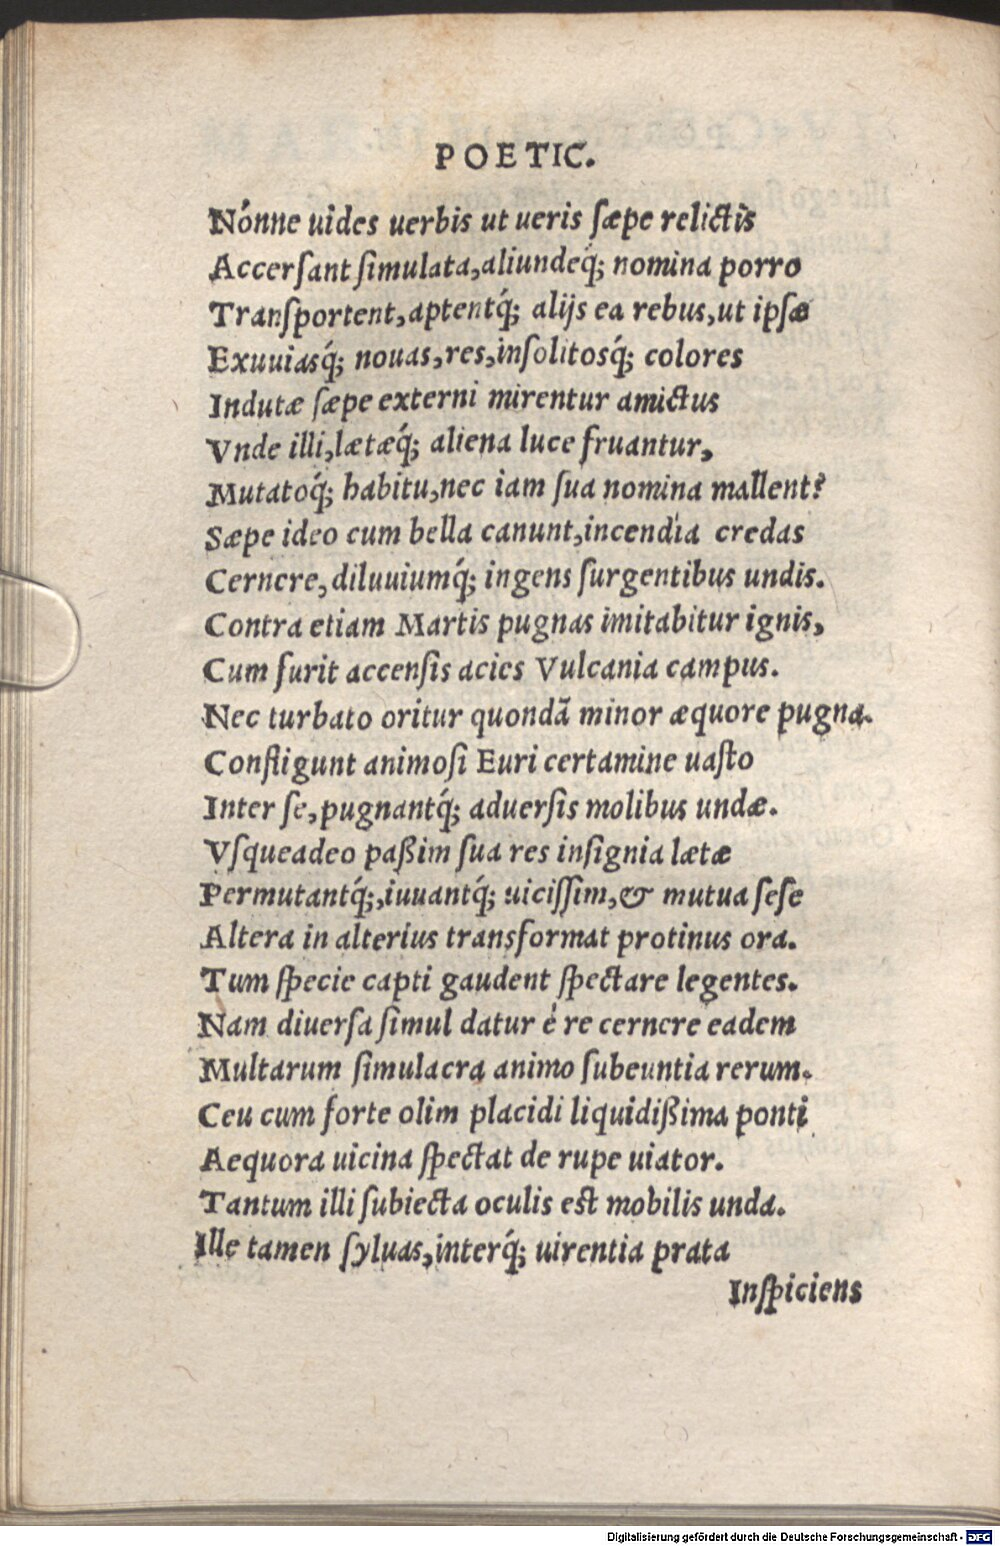 POETIC.
Nónne uides uerbis ut ueris sæpe relictis
Accersant simulata, aliundeq́; nomina porro
Transportent, aptentq́; alijs ea rebus, ut ipsæ
Exuuiasq́; nouas, res, insolitosq́; colores
Indutæ sæpe externi mirentur amictus
Vnde illi, lætæq́; aliena luce fruantur,
Mutatoq́; habitu, nec iam sua nomina mallent?
Sæpe ideo cum bella canunt, incendia credas
Cernere, diluuiumq́; ingens surgentibus undis.
Contra etiam Martis pugnas imitabitur ignis,
Cum furit accensis acies Vulcania campus.
Nec turbato oritur quondã minor æquore pugna.
Confligunt animosi Euri certamine uasto
Inter se, pugnantq́; aduersis molibus undæ.
Vsqueadeo paßim sua res insignia lætæ
Permutantq́;, iuuantq́; uicissim, & mutua sese
Altera in alterius transformat protinus ora.
Tum specie capti gaudent spectare legentes.
Nam diuersa simul datur é re cernere eadem
Multarum simulacra animo subeuntia rerum.
Ceu cum forte olim placidi liquidißima ponti
Aequora uicina spectat de rupe uiator.
Tantum illi subiecta oculis est mobilis unda.
Ille tamen syluas, interq́; uirentia prata
Inspiciens
Digitalisierung gefördert durch die Deutsche Forschungsgemeinschaft - DFG